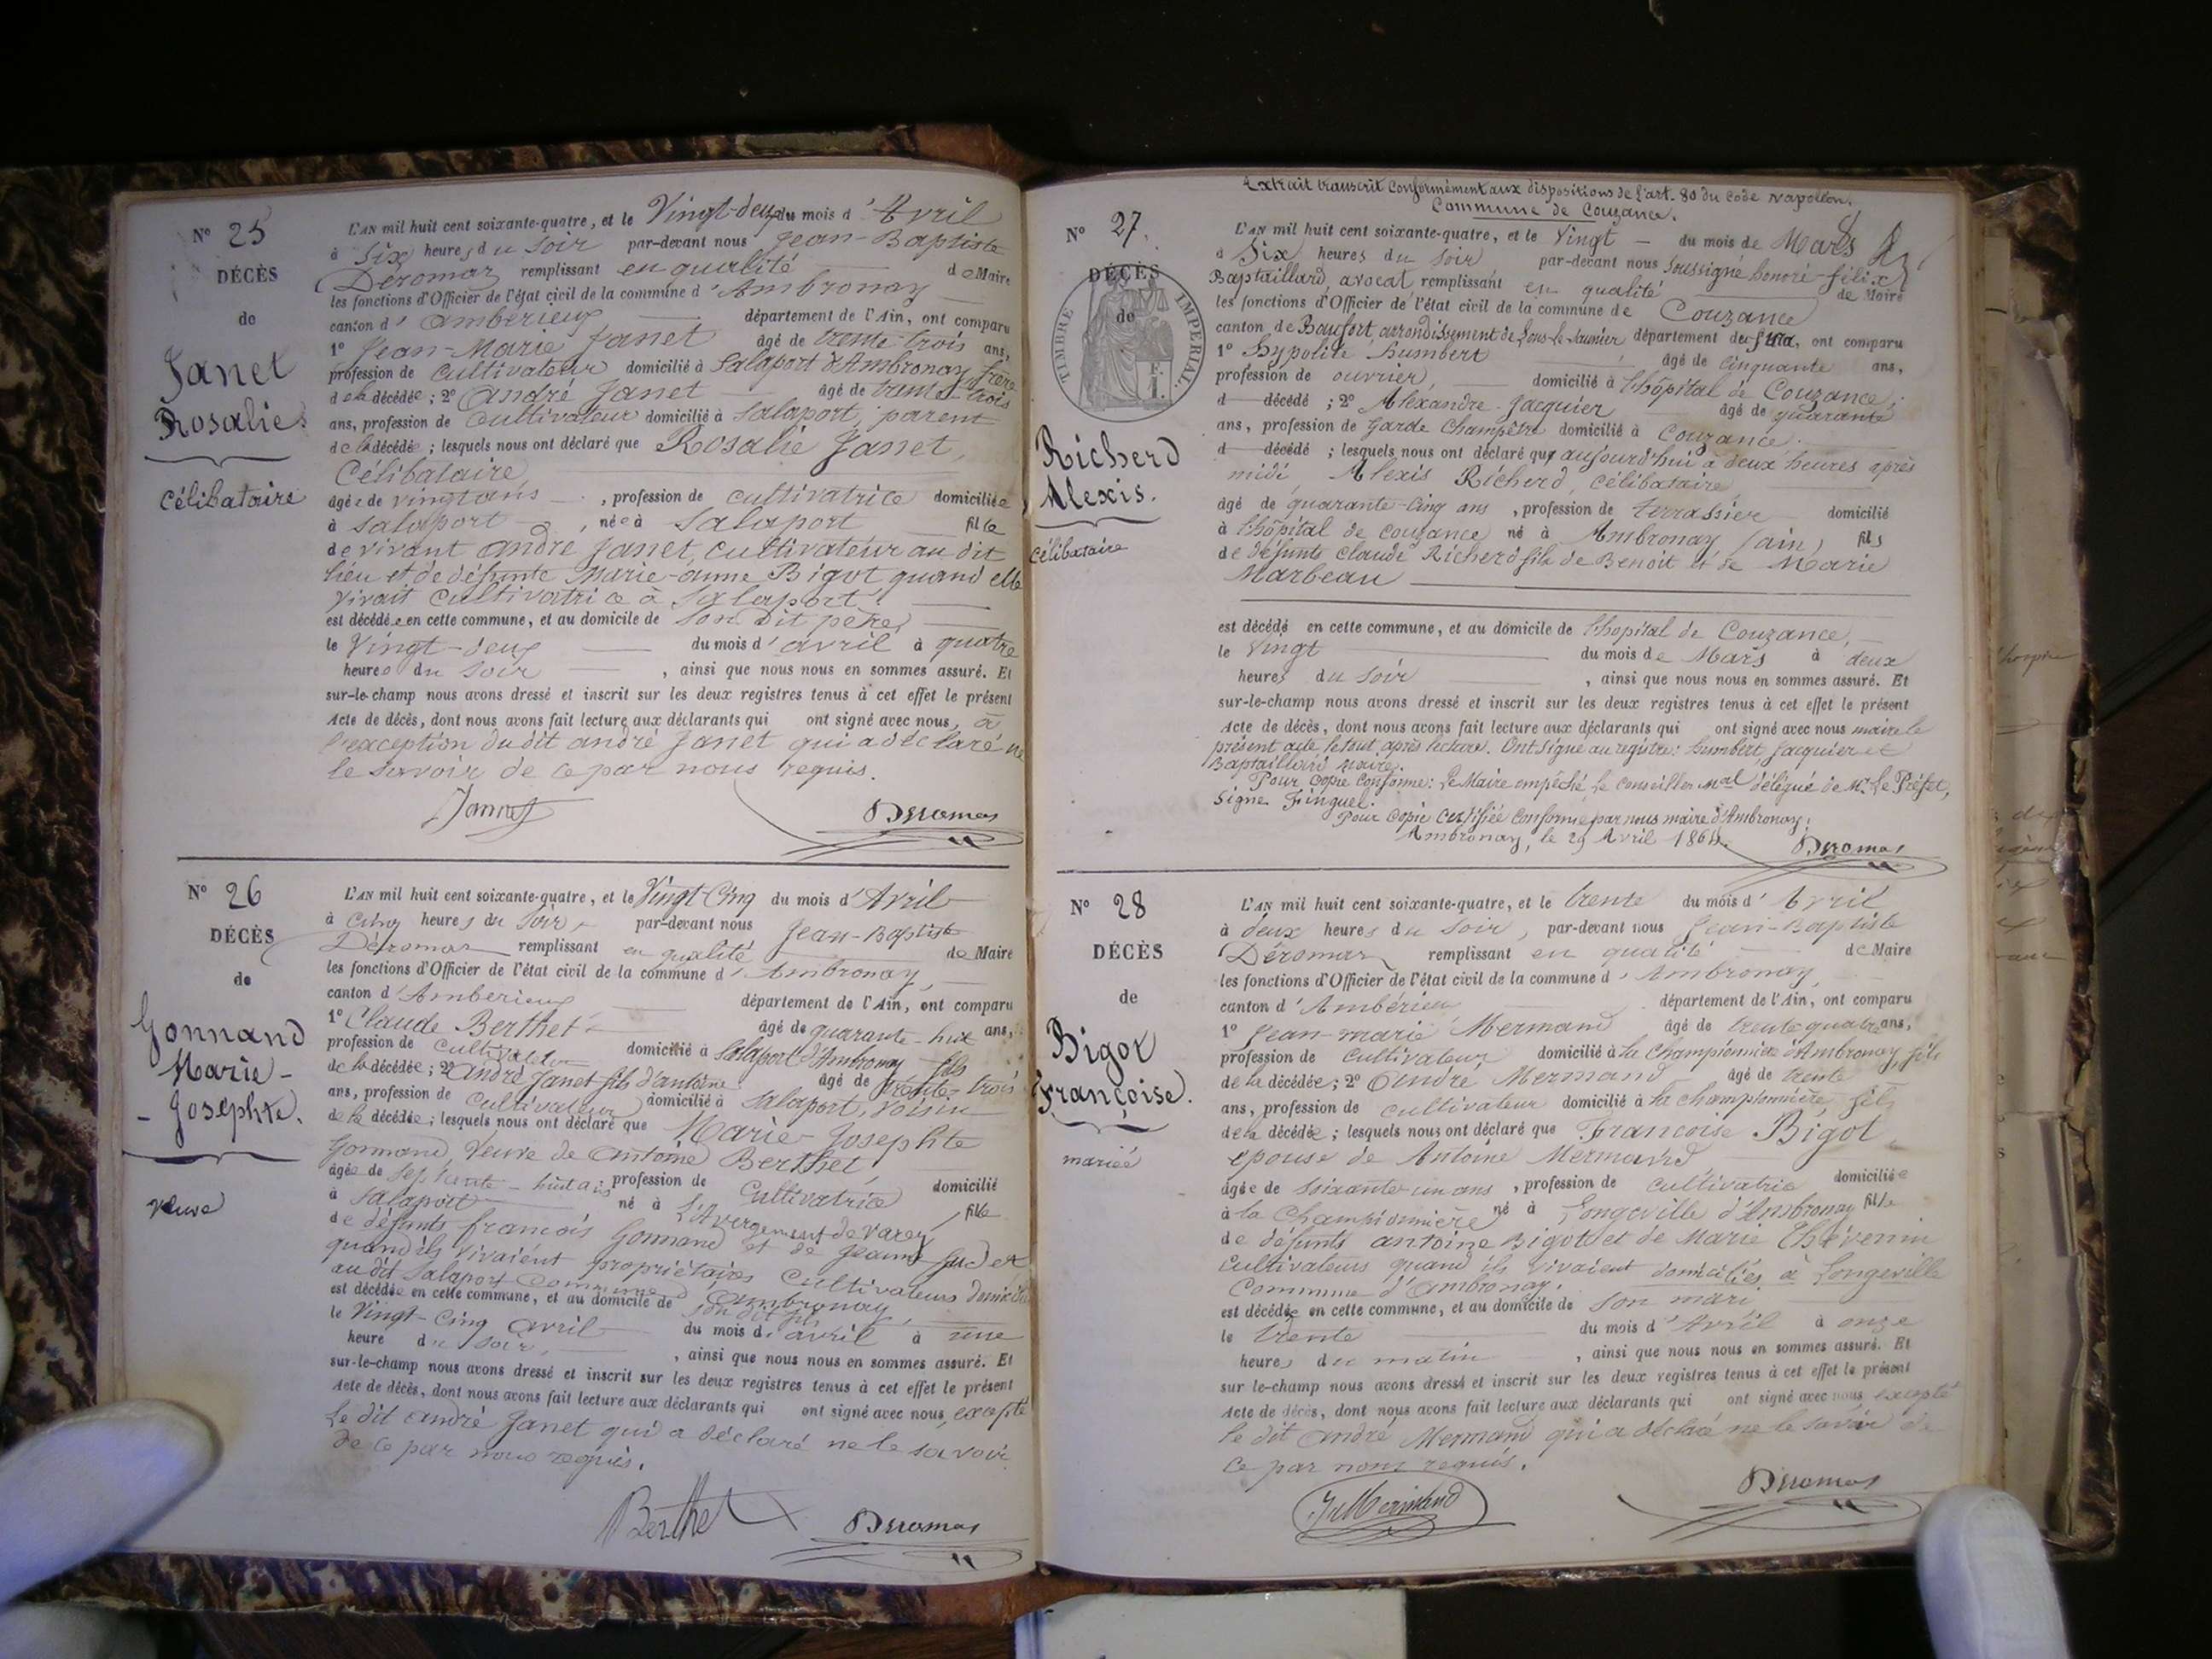 N° 25
DÉCÈS
de
Janet
Rosalie
célibataire
L'AN mil huit cent soixante-quatre, et le Vingt-deux du mois d'Avril
à Six heures du Soir par-devant nous Jean-Baptiste
Déromas remplissant en qualité de Maire
les fonctions d'Officier de l'état civil de la commune d'Ambronay
canton d'Ambérieux département de l'Ain, ont comparu
1° Jean-Marie Janet âgé de trente-trois ans,
profession de Cultivateur domicilié à Salaport d'Ambronay, frère
de la décédée ; 2° André Janet âgé de trente-trois
ans, profession de Cultivateur domicilié à Salaport, parent
de la décédée ; lesquels nous ont déclaré que Rosalie Janet,
Célibataire
âgée de vingt ans , profession de cultivatrice domiciliée
à Salaport , née à Salaport fille
de vivant André Janet, cultivateur au dit
lieu et de défunte Marie-Anne Bigot quand elle
vivait Cultivatrice à Salaport.
est décédée en cette commune, et au domicile de son dit père,
le Vingt-deux du mois d'avril à quatre
heures du Soir , ainsi que nous nous en sommes assuré. Et
sur-le-champ nous avons dressé et inscrit sur les deux registres tenus à cet effet le présent
Acte de décès, dont nous avons fait lecture aux déclarants qui ont signé avec nous, à
l'exception du dit André Janet qui a déclaré ne
le savoir de ce par nous requis.
Janet Deromas
N° 26
DÉCÈS
de
Gonnand
Marie-
- Josephte.
veuve
L'AN mil huit cent soixante-quatre, et le Vingt-Cinq du mois d'Avril
à Cinq heures du Soir, par-devant nous Jean-Baptiste
Déromas remplissant en qualité de Maire
les fonctions d'Officier de l'état civil de la commune d'Ambronay,
canton d'Amberieux département de l'Ain, ont comparu
1° Claude Berthet âgé de quarante-huit ans,
profession de Cultivateur domicilié à Salaport d'Ambronay fils
de la décédée ; 2° André Janet fils d'antoine âgé de trente-trois
ans, profession de Cultivateur domicilié à Salaport, voisin
de la décédée ; lesquels nous ont déclaré que Marie-Josephte
Gonnand, Veuve de Antoine Berthet,
âgée de septante-huit ans profession de Cultivatrice domicilié
à Salaport né à L'Avergement-de-Varey, fille
de défunts françois Gonnand et de Jeanne
quand ils vivaient propriétaires Cultivateurs domiciliés
au dit Salaport Commune d'Ambronay,
est décédée en cette commune, et au domicile de son dit fils
le Vingt-Cinq avril du mois d'avril à une
heure du Soir, , ainsi que nous nous en sommes assuré. Et
sur-le-champ nous avons dressé et inscrit sur les deux registres tenus à cet effet le présent
Acte de décès, dont nous avons fait lecture aux déclarants qui ont signé avec nous, excepté
Le dit André Janet qui a déclaré ne le savoir
de ce par nous requis.
Berthet Deromas
Extrait transcrit Conformément aux dispositions de l'art. 80 du Code Napoléon.
Commune de Couzance.
N° 27.
DÉCÈS
de
TIMBRE IMPERIAL
1 F.
Richerd
Alexis.
célibataire
L'AN mil huit cent soixante-quatre, et le Vingt du mois de Mars
à Six heures du soir par-devant nous Soussigné honoré-félix
Baptaillard, avocat, remplissant en qualité de Maire
les fonctions d'Officier de l'état civil de la commune de Couzance
canton de Baufort, arrondissement de Lons-le-Saunier département du Jura, ont comparu
1° hypolite humbert âgé de cinquante ans,
profession de ouvrier, domicilié à l'hôpital de Couzance,
d décédé ; 2° Alexandre Jacquier âgé de quarante
ans, profession de Garde Champêtre domicilié à Couzance.
d décédé ; lesquels nous ont déclaré que aujourd'hui à deux heures après
midi, Alexis Richerd, célibataire
âgé de quarante-cinq ans , profession de terrassier domicilié
à l'hôpital de couzance né à Ambronay (ain) fils
de défunts Claude Richerd fils de Benoit et de Marie
Marbeau
est décédé en cette commune, et au domicile de l'hopital de Couzance,
le Vingt du mois de Mars à deux
heures du soir , ainsi que nous nous en sommes assuré. Et
sur-le-champ nous avons dressé et inscrit sur les deux registres tenus à cet effet le présent
Acte de décès, dont nous avons fait lecture aux déclarants qui ont signé avec nous maire le
présent acte le tout après lecture. Ont signé au registre : humbert, Jacquier et
Baptaillard maire.
Pour copie Conforme : Le Maire empêché Le Conseiller Mal délégué de Mr. Le Préfet,
Signé Finguel.
Pour Copie Certifiée Conforme par nous maire d'Ambronay :
Ambronay, le 29 Avril 1864.
Deromas
N° 28
DÉCÈS
de
Bigot
Françoise.
mariée
L'AN mil huit cent soixante-quatre, et le trente du mois d'Avril
à deux heures du Soir, par-devant nous Jean-Baptiste
Déromas remplissant en qualité de Maire
les fonctions d'Officier de l'état civil de la commune d'Ambronay,
canton d'Ambérieu département de l'Ain, ont comparu
1° Jean-Marie Mermand âgé de trente quatre ans,
profession de Cultivateur domicilié à la Championnière d'Ambronay, fils
de la décédée ; 2° André Mermand âgé de trente
ans, profession de cultivateur domicilié à la championnière, fils
de la décédée ; lesquels nous ont déclaré que Françoise Bigot
épouse de Antoine Mermand
âgée de soixante-un ans , profession de cultivatrice domiciliée
à la Championnière né à Longeville d'Ambronay fille
de défunts antoine Bigot et de Marie Thévenin
Cultivateurs quand ils vivaient domiciliés à Longeville
Commune d'Ambronay.
est décédée en cette commune, et au domicile de son mari
le trente du mois d'Avril à onze
heures du matin , ainsi que nous nous en sommes assuré. Et
sur le-champ nous avons dressé et inscrit sur les deux registres tenus à cet effet le présent
Acte de décès, dont nous avons fait lecture aux déclarants qui ont signé avec nous excepté
le dit André Mermand qui a déclaré ne le savoir de
ce par nous requis.
JMMermand Deromas